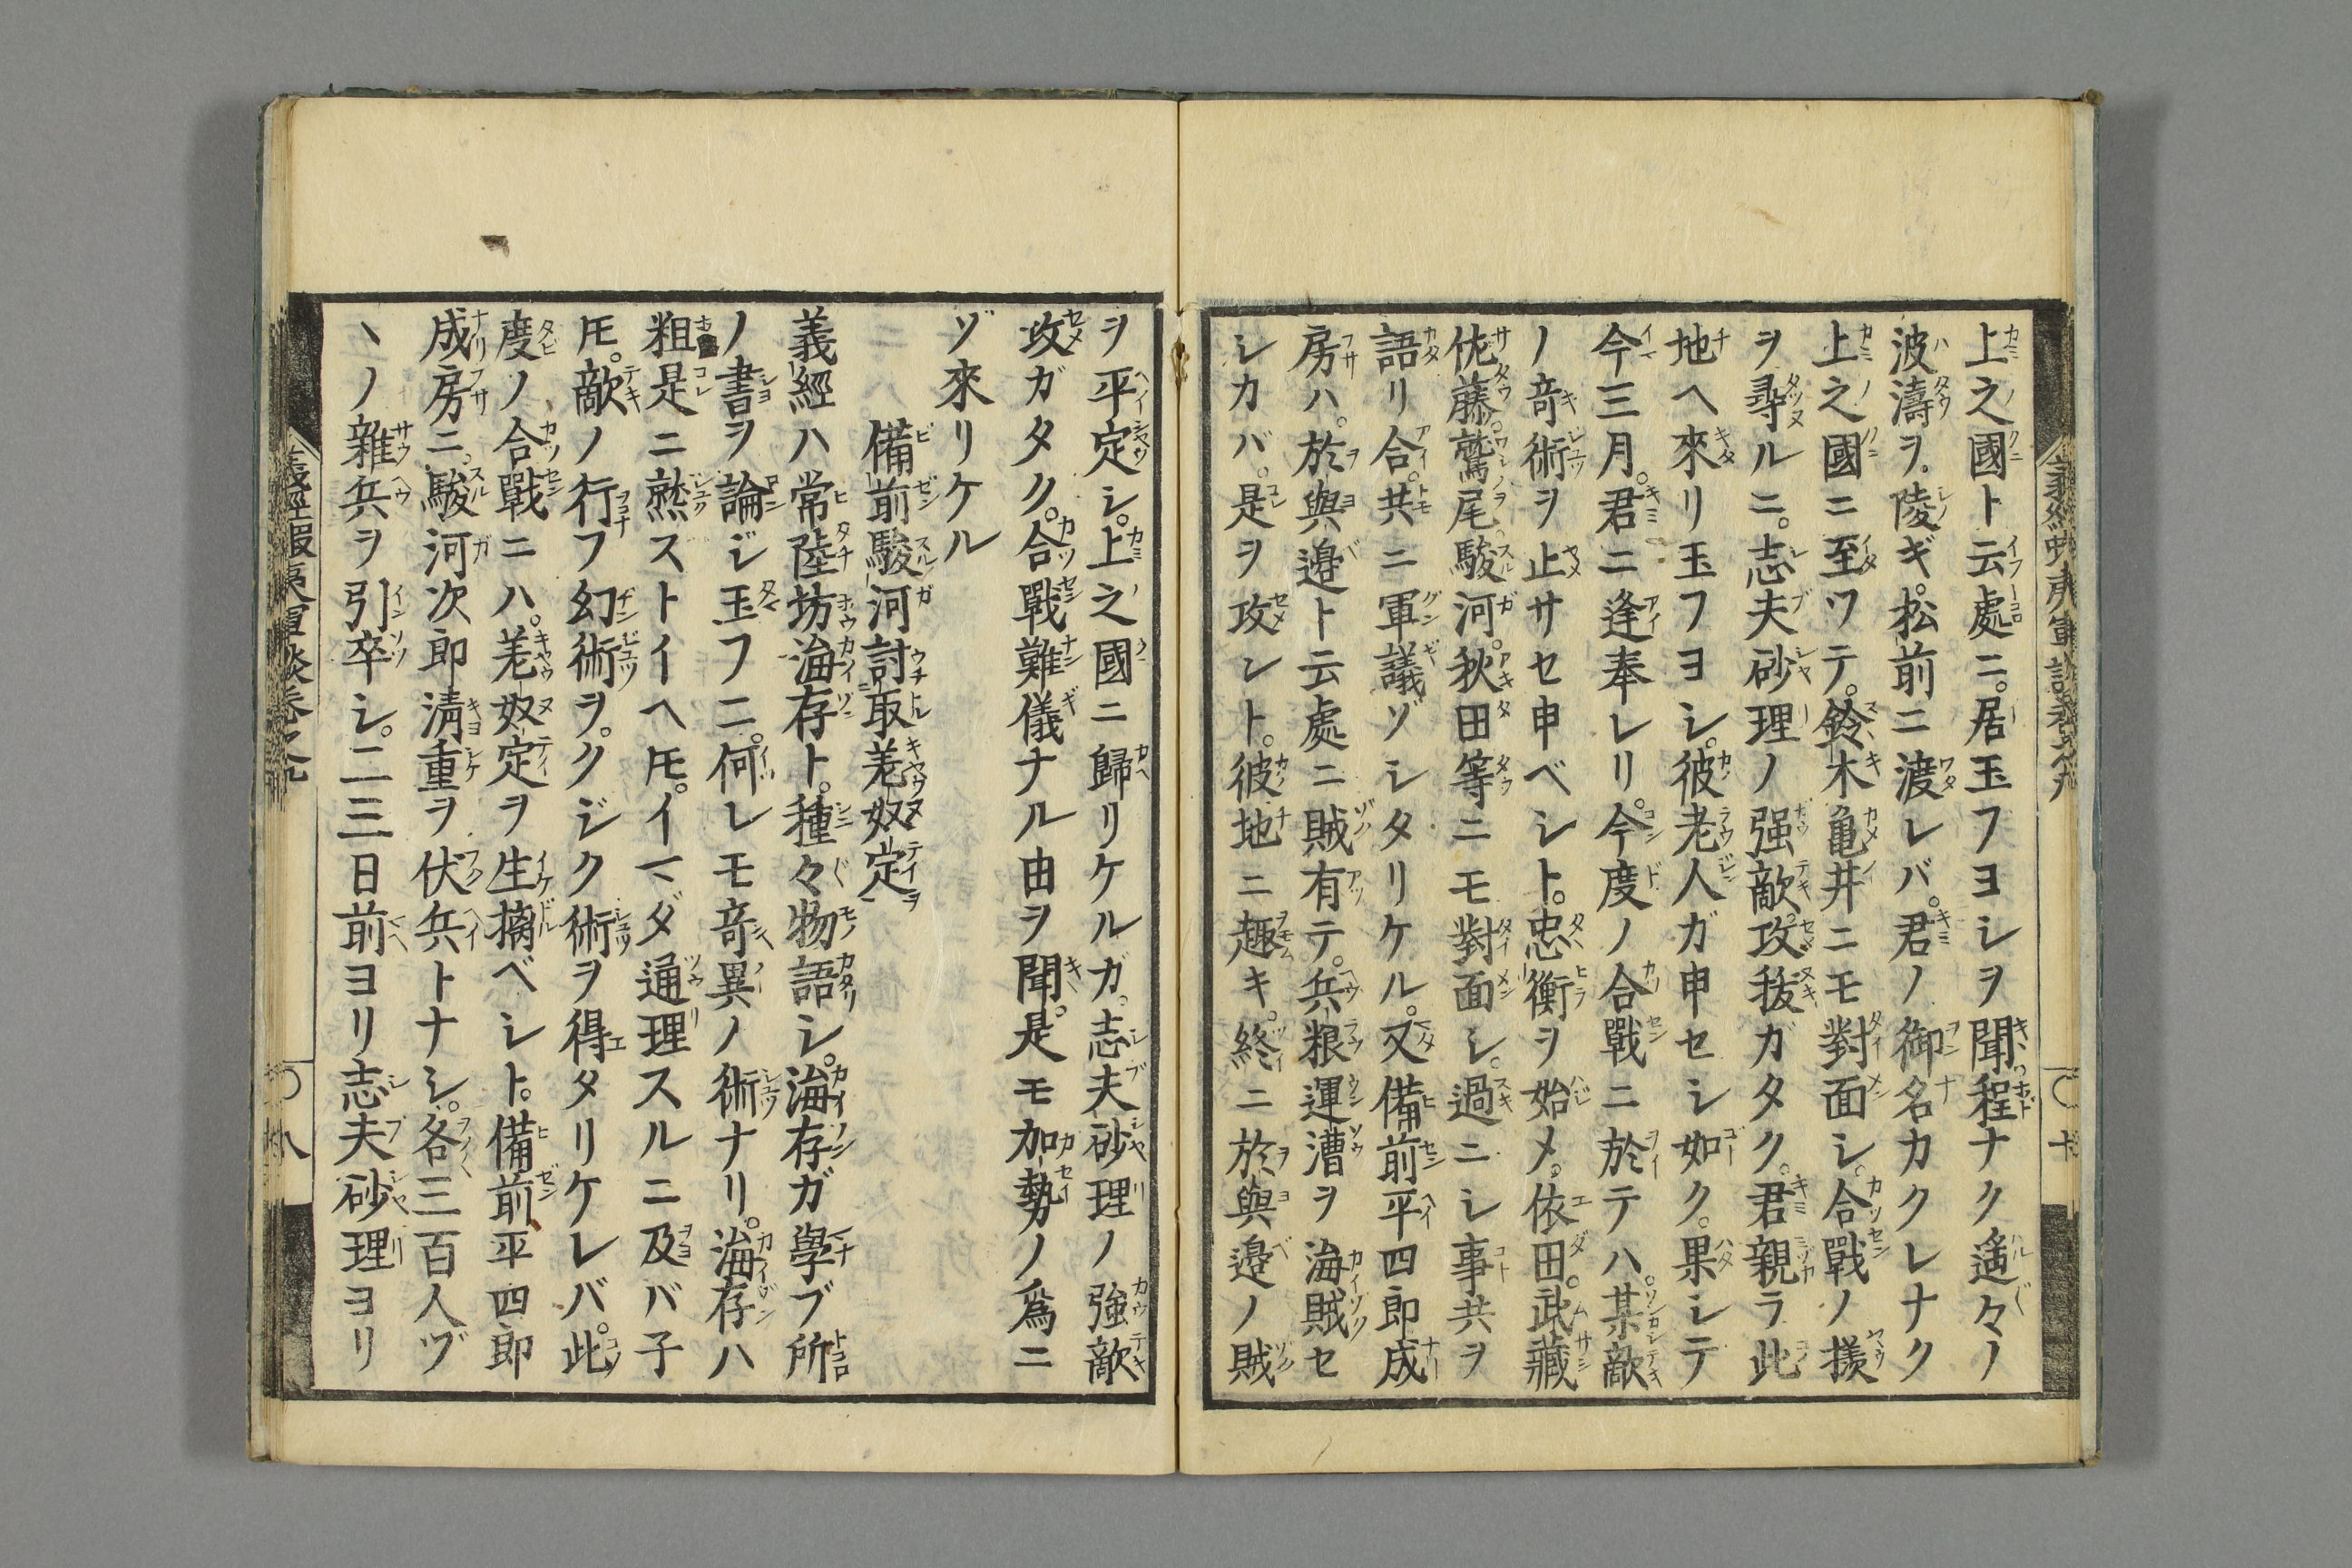 上之國ト云處ニ。居玉フヨシヲ聞。程ナク遙々ノ
波濤ヲ。陵ギ。松前ニ渡レバ。君ノ御名カクレナク
上之國ニ至ツテ。鈴木亀井ニモ對面シ。合戰ノ様
ヲ尋ルニ。志夫砂理ノ强敵攻抜ガタク。君親ラ此
地ヘ來リ玉フヨシ。彼老人ガ申セシ如ク。果シテ
今三月。君ニ逢奉レリ。今度ノ合戰ニ於テハ。某敵
ノ竒術ヲ止サセ申ベシト。忠衡ヲ始メ。依田。武藏
佐藤。鷲尾。駿河。秋田等ニモ對面シ。過ニシ事共ヲ
語リ合。共ニ軍議ゾシタリケル。又備前平四郎成
房ハ。於與邉ト云處ニ賊有テ。兵粮運漕ヲ海賊セ
シカバ。是ヲ攻ントト。彼地ニ趣キ。終ニ於與邉ノ賊
ヲ平定シ。上之國ニ歸リケルガ。志夫砂理ノ強敵
攻ガタク。合戰難儀ナル由ヲ聞。是モ加勢ノ爲ニ
ゾ來リケル
備前駿河討取羗奴定
義經ハ常陸坊海存ト。種々物語シ。海存ガ學ブ所
ノ書ヲ論ジ玉フニ。何レモ竒異ノ術ナリ。海存ハ
粗是ニ熟ストイヘ𪜈。イマダ通理スルニ及バ子
𪜈。敵ノ行フ幻術ヲ。クジク術ヲ得タリケレバ。此
度ノ合戰ニハ。羗奴定ヲ生擒ベシト。備前平四郎
成房ニ。駿河次郎淸重ヲ伏兵トナシ。各三百人ヅ
ヽノ雜兵ヲ引卒シ。二三日前ヨリ志夫砂理ヨリ
八